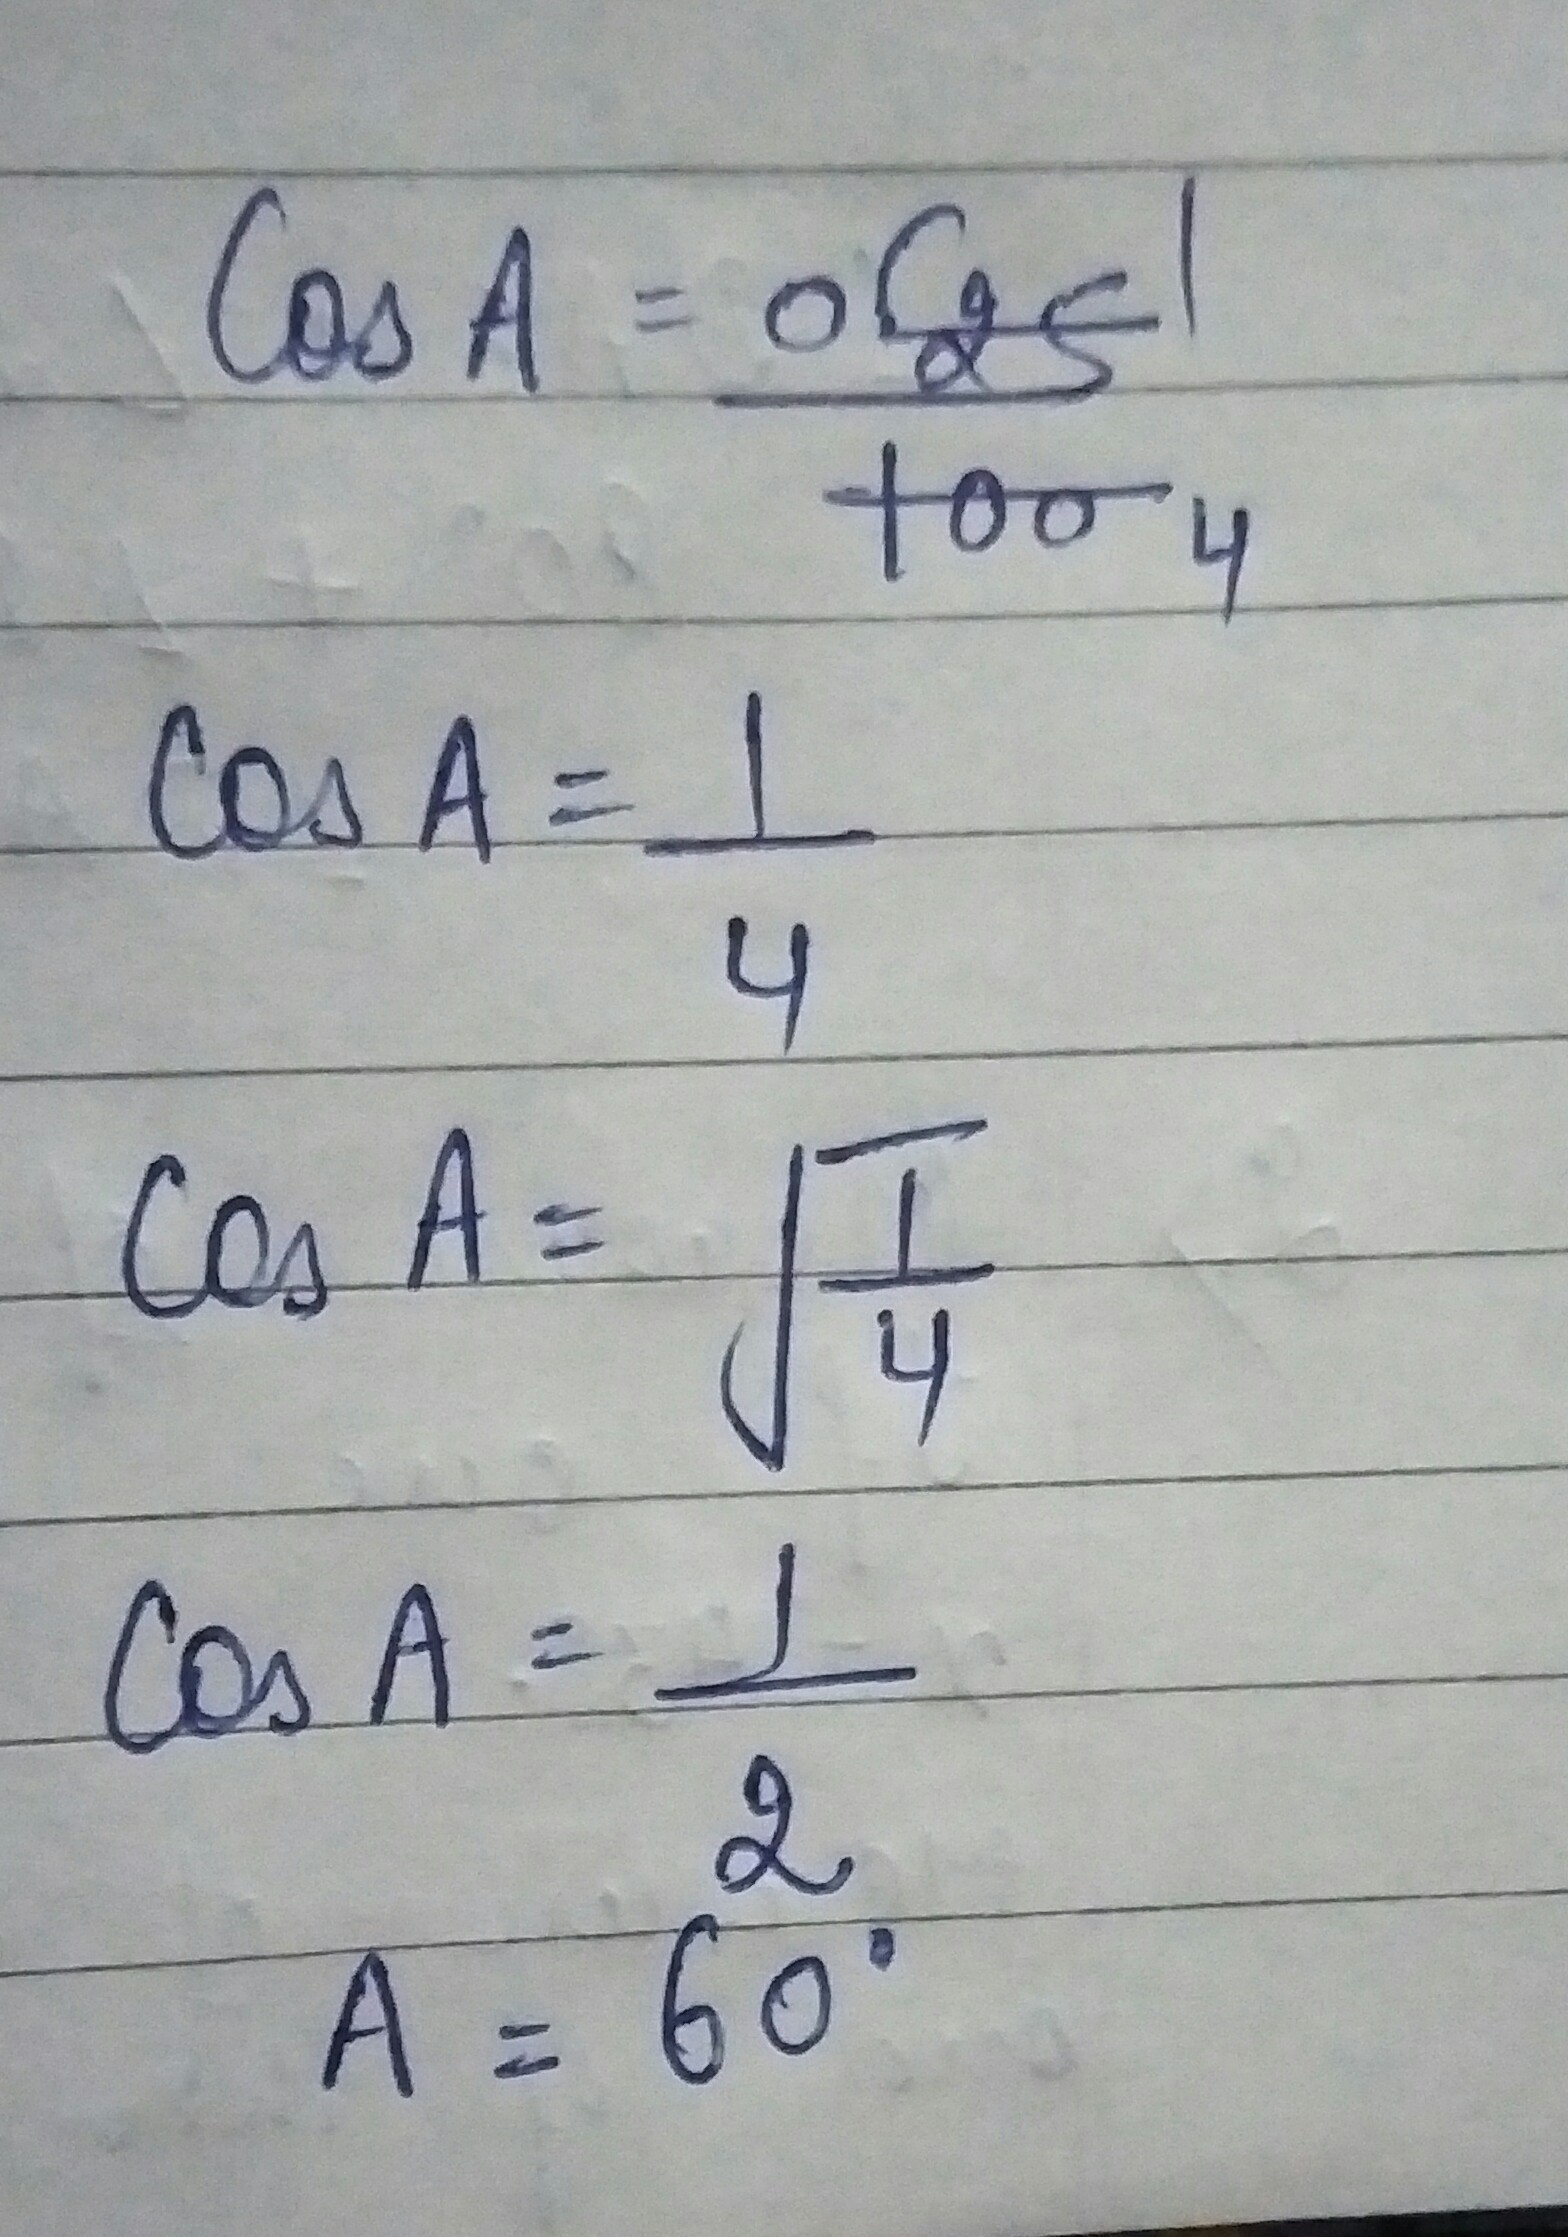 Cos A = 0 25 1
100 4
Cos A = 1
4
Cos A = √1
4
Cos A = 1
2
A = 60°